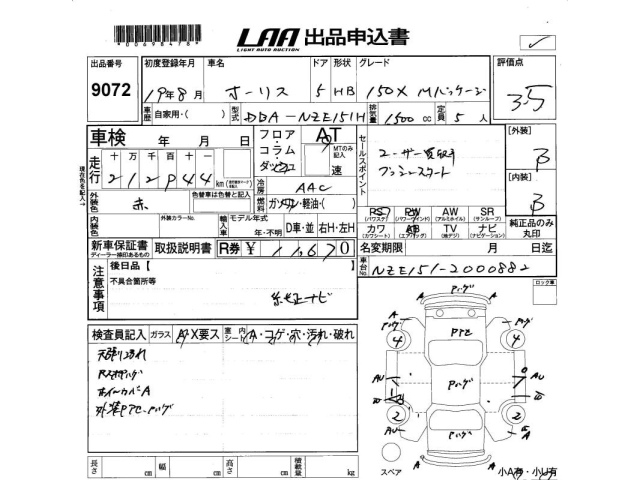 *00698478*
LAA 出品申込書
LIGHT AUTO AUCTION
出品番号 初度登録年月 車名 ドア 形状 グレード 評価点
9072 19年8月 オーリス 5 HB 150X Mパッケージ 3.5
車歴 自家用・( ) 型式 DBA-NZE151H 排気量 1500cc 定員 5人
車検 年 月 日
フロア・コラム・ダッシュ AT MTのみ記入 速
セールスポイント
ユーザー買取車
プッシュスタート
[外装] B
[内装] B
走行 十 万 千 百 十 一
2 1 2 9 4 4 km
冷房 AAC
外装色 赤 色替車は色替と記入
燃料 ガソリン・軽油・( )
PS (パワステ) PW (パワーウインド) AW (アルミホイル) SR (サンルーフ)
カワ (カワシート) AB (エアバッグ) TV (地デジ) ナビ (ナビゲーション)
純正品のみ丸印
内装色 外装カラーNo. 輸入車 モデル年式 年・不明 D車・並 右H・左H
新車保証書 取扱説明書 R券 ¥ 11,670
ディーラー捺印あるもの
名変期限 月 日迄
車台No. NZE151-2000882
注意事項
後日品【
不具合箇所等
純正ナビ
ロック車
検査員記入 ガラス A・X要ス 室内シート A・コゲ・穴・汚れ・破れ
天張り汚れ
ホイールカバーA
長さ cm 幅 cm 高さ cm 積載量 kg
スペア 小A有・小U有